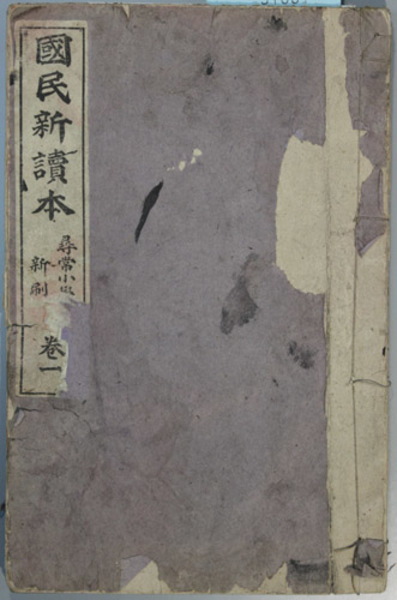 國民新讀本
尋常小
新刷
卷一